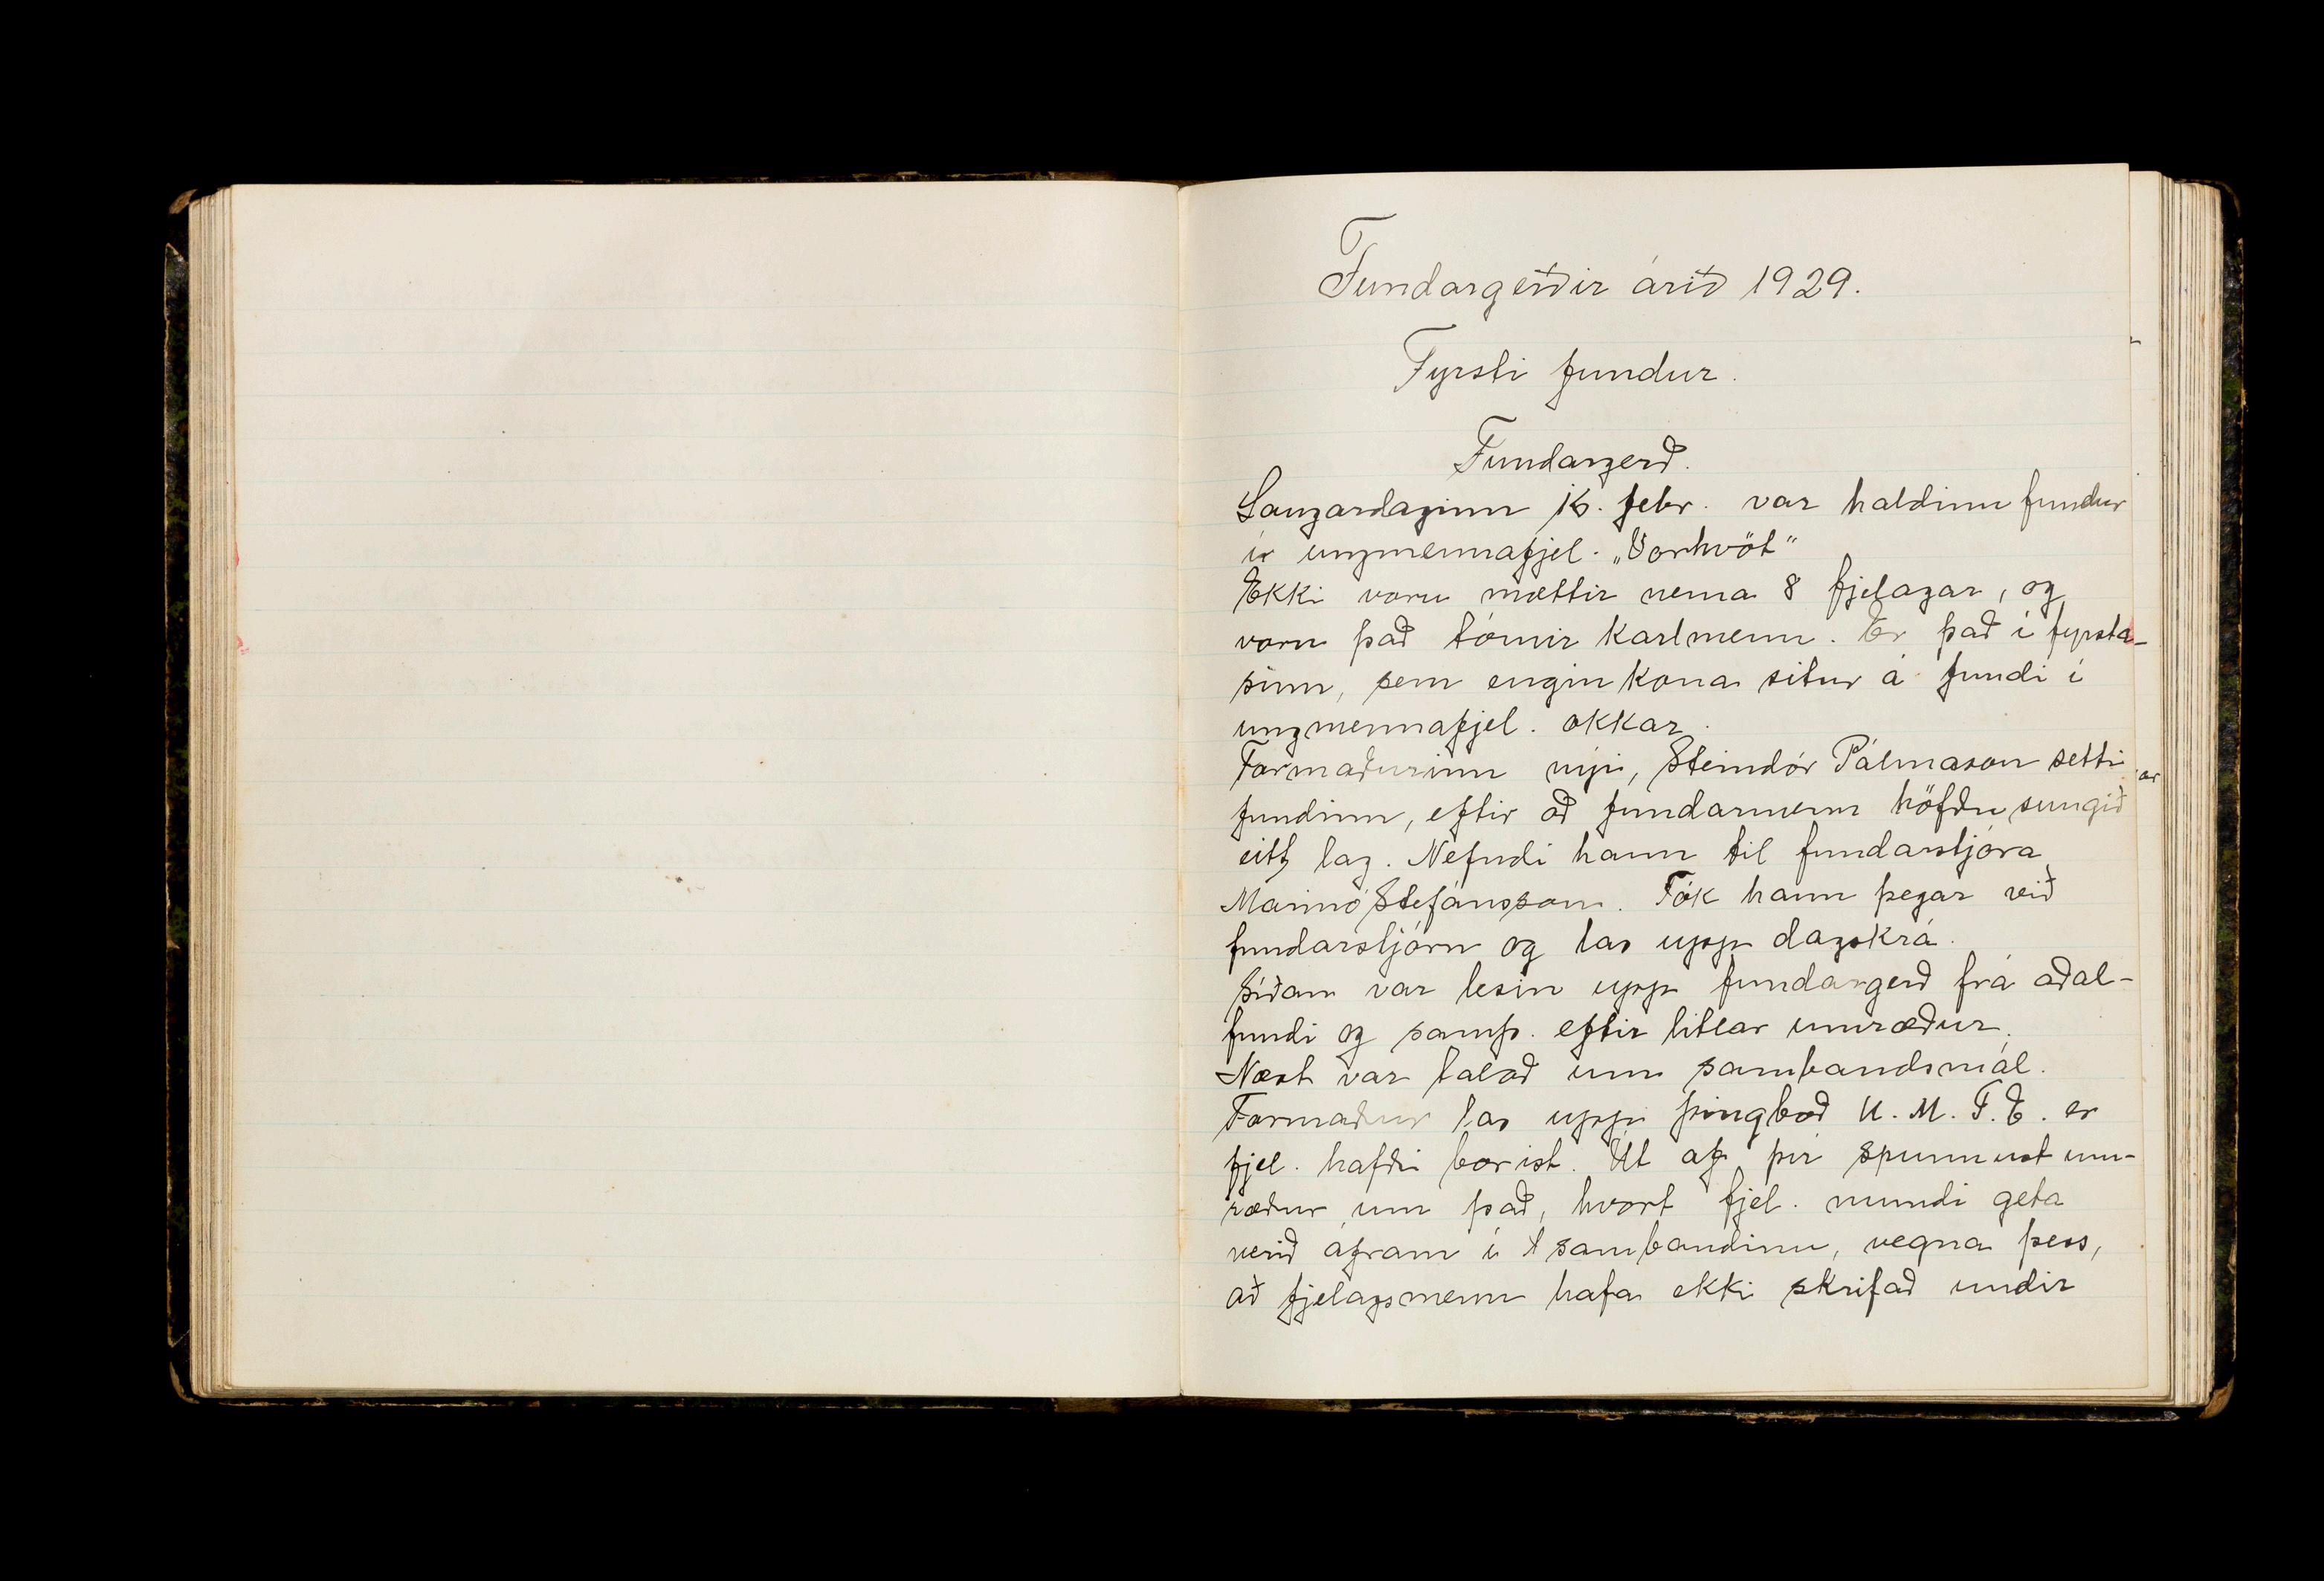 Fundargerðir árið 1929.
Fyrsti fundur.
Fundargerð.
Laugardaginn 16. febr. var haldinn fundur
í ungmennafjel. „Vorhvöt"
Ekki voru mættir nema 8 fjelagar, og
voru það tómir karlmenn. Er það í fyrsta-
sinn, sem engin kona situr á fundi í
ungmennafjel. okkar.
Formaðurinn nýi, Steindór Pálmason setti
fundinn, eftir að fundarmenn höfðu sungið
eitt lag. Nefndi hann til fundarstjóra
Marinó Stefánsson. Tók hann þegar við
fundarstjórn og las upp dagskrá.
Síðan var lesin upp fundargerð frá aðal-
fundi og samþ. eftir litlar umræður.
Næst var talað um sambandsmál.
Formaður las upp þingboð U.M.S.E. er
fjel. hafði borist. Út af því spunnust um-
ræður um það, hvort fjel. mundi geta
verið áfram í sambandinu, vegna þess,
að fjelagsmenn hafa ekki skrifað undir